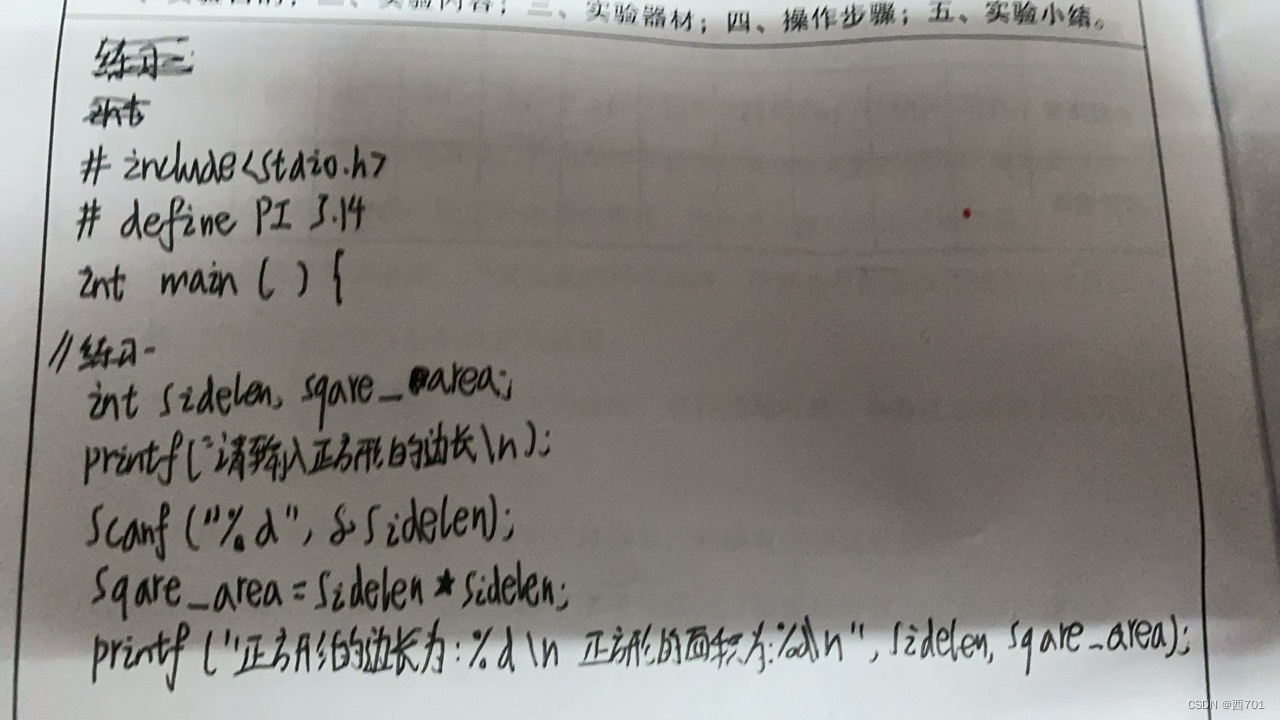 实验内容；三、实验器材；四、操作步骤；五、实验小结。
练习一
int
# include<stdio.h>
# define PI 3.14
int main ( ) {
//练习一
int sidelen, sqare_area;
printf("请输入正方形的边长\n);
scanf ("%d", &sidelen);
sqare_area = sidelen * sidelen;
printf ("正方形的边长为:%d\n 正方形的面积为:%d\n", sidelen, sqare_area);
CSDN @西701